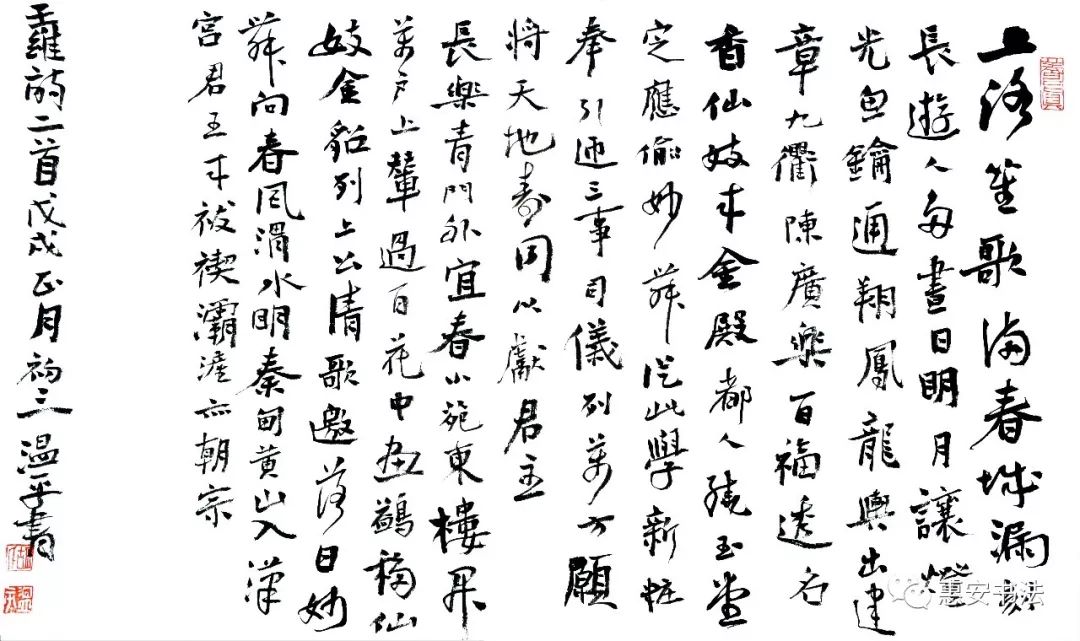 上路笙歌滿春城漏刻
長遊人多晝日明月讓燈
光魚鑰通翔鳳龍輿出建
章九衢陳廣樂百福透名
香仙妓來金殿都人繞玉堂
定應偷妙舞從此學新粧
奉引迎三事司儀列萬方願
將天地壽同以獻君王
長樂青門外宜春小苑東樓開
萬戶上輦過百花中畫鷁移仙
妓金貂列上公清歌邀落日妙
舞向春風渭水明秦甸黃山入漢
宮君王來祓禊灞滻亦朝宗
王維詩二首戊戌正月初三溫平書
惠安书法